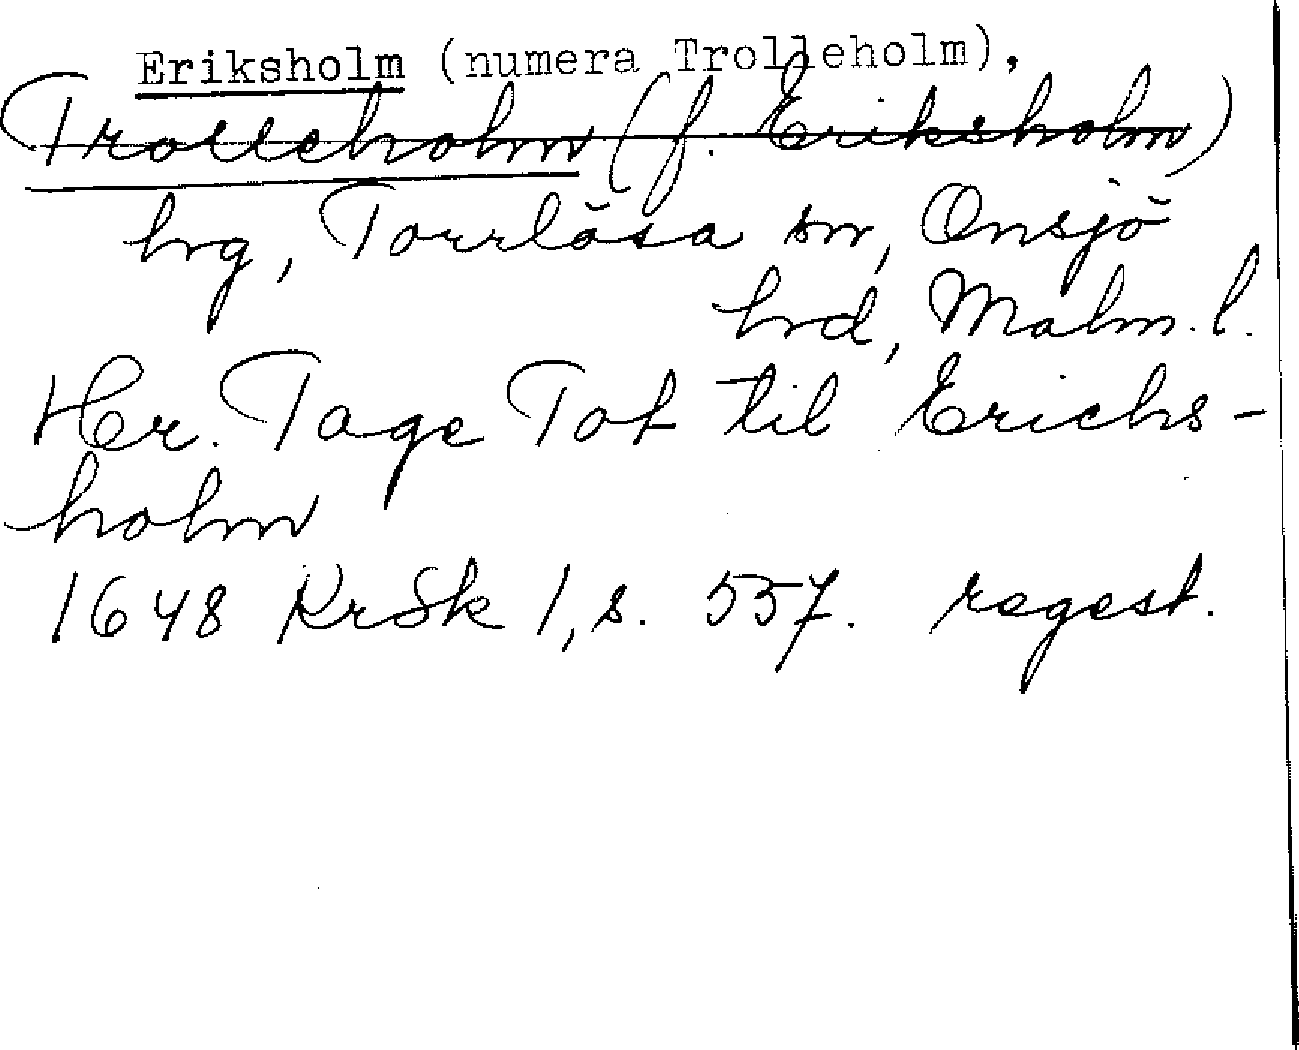 Eriksholm (numera Trolleholm),
Trolleholm (f. Eriksholm)
hrg, Torrlösa sn, Onsjö
hrd, Malm. l.
Her. Tage Tot til Erichs-
holm
1648 KrSk 1, s. 557. regest.